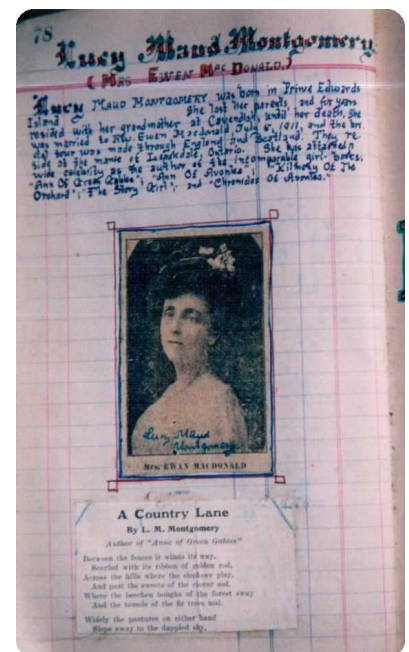 78
Lucy Maud Montgomery
(MRS EWEN MACDONALD.)
LUCY MAUD MONTGOMERY was born in Prince Edwards
Island She lost her parents, and for years
resided with her grandmother at Cavendish, until her death. She
was married to Rev. Ewen Macdonald July 1911, and the
tour was made through England and Scotland. They
side at the manse at Ontario. She has attained
wide celebrity as the author of the incomparable girl books,
"Ann Of Green Gables", "Ann Of Avonlea", "Kilmeny Of The
Orchard", "The Story Girl", and "Chronicles Of Avonlea."
Lucy Maud
Montgomery
Mrs. EWAN MACDONALD
A Country Lane
By L. M. Montgomery
Author of "Anne of Green Gables"
Between the fences it winds its way,
Scarfed with its ribbon of golden rod,
Across the hills where the shadows play,
And past the sweets of the clover sod,
Where the beechen boughs of the forest sway
And the tassels of the fir trees nod.
Widely the pastures on either hand
Slope away to the dappled sky,